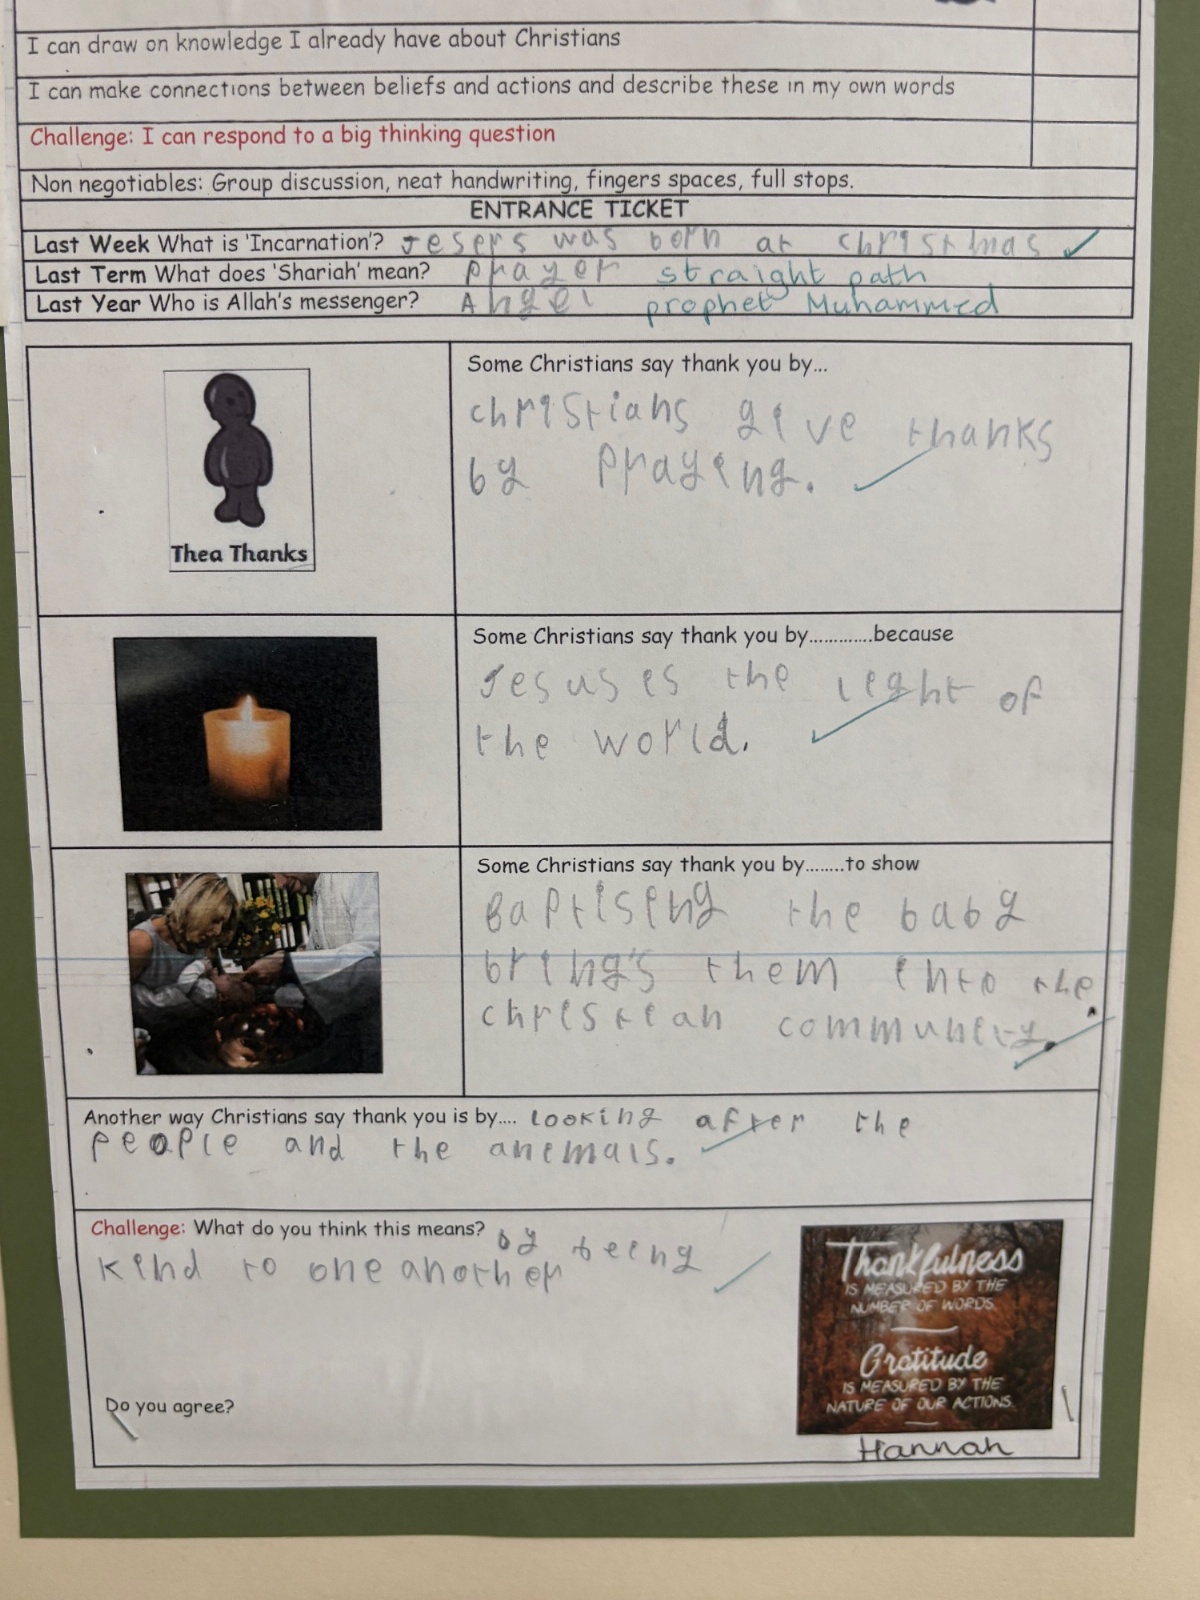 I can draw on knowledge I already have about Christians
I can make connections between beliefs and actions and describe these in my own words
Challenge: I can respond to a big thinking question
Non negotiables: Group discussion, neat handwriting, fingers spaces, full stops.
ENTRANCE TICKET
Last Week What is 'Incarnation'? Jesers was born at christmas
Last Term What does 'Shariah' mean? prayer straight path
Last Year Who is Allah's messenger? Angel prophet Muhammed
Thea Thanks
Some Christians say thank you by...
christians give thanks
by praying.
Some Christians say thank you by.............because
Jesus es the leght of
the world.
Some Christians say thank you by........to show
Baptiseng the baby
breng's them ento the
chrestean communety.
Another way Christians say thank you is by.... looking after the
people and the anemals.
Challenge: What do you think this means? by beeng
kend to one another
Thankfulness
IS MEASURED BY THE
NUMBER OF WORDS.
Gratitude
IS MEASURED BY THE
NATURE OF OUR ACTIONS.
Do you agree?
Hannah